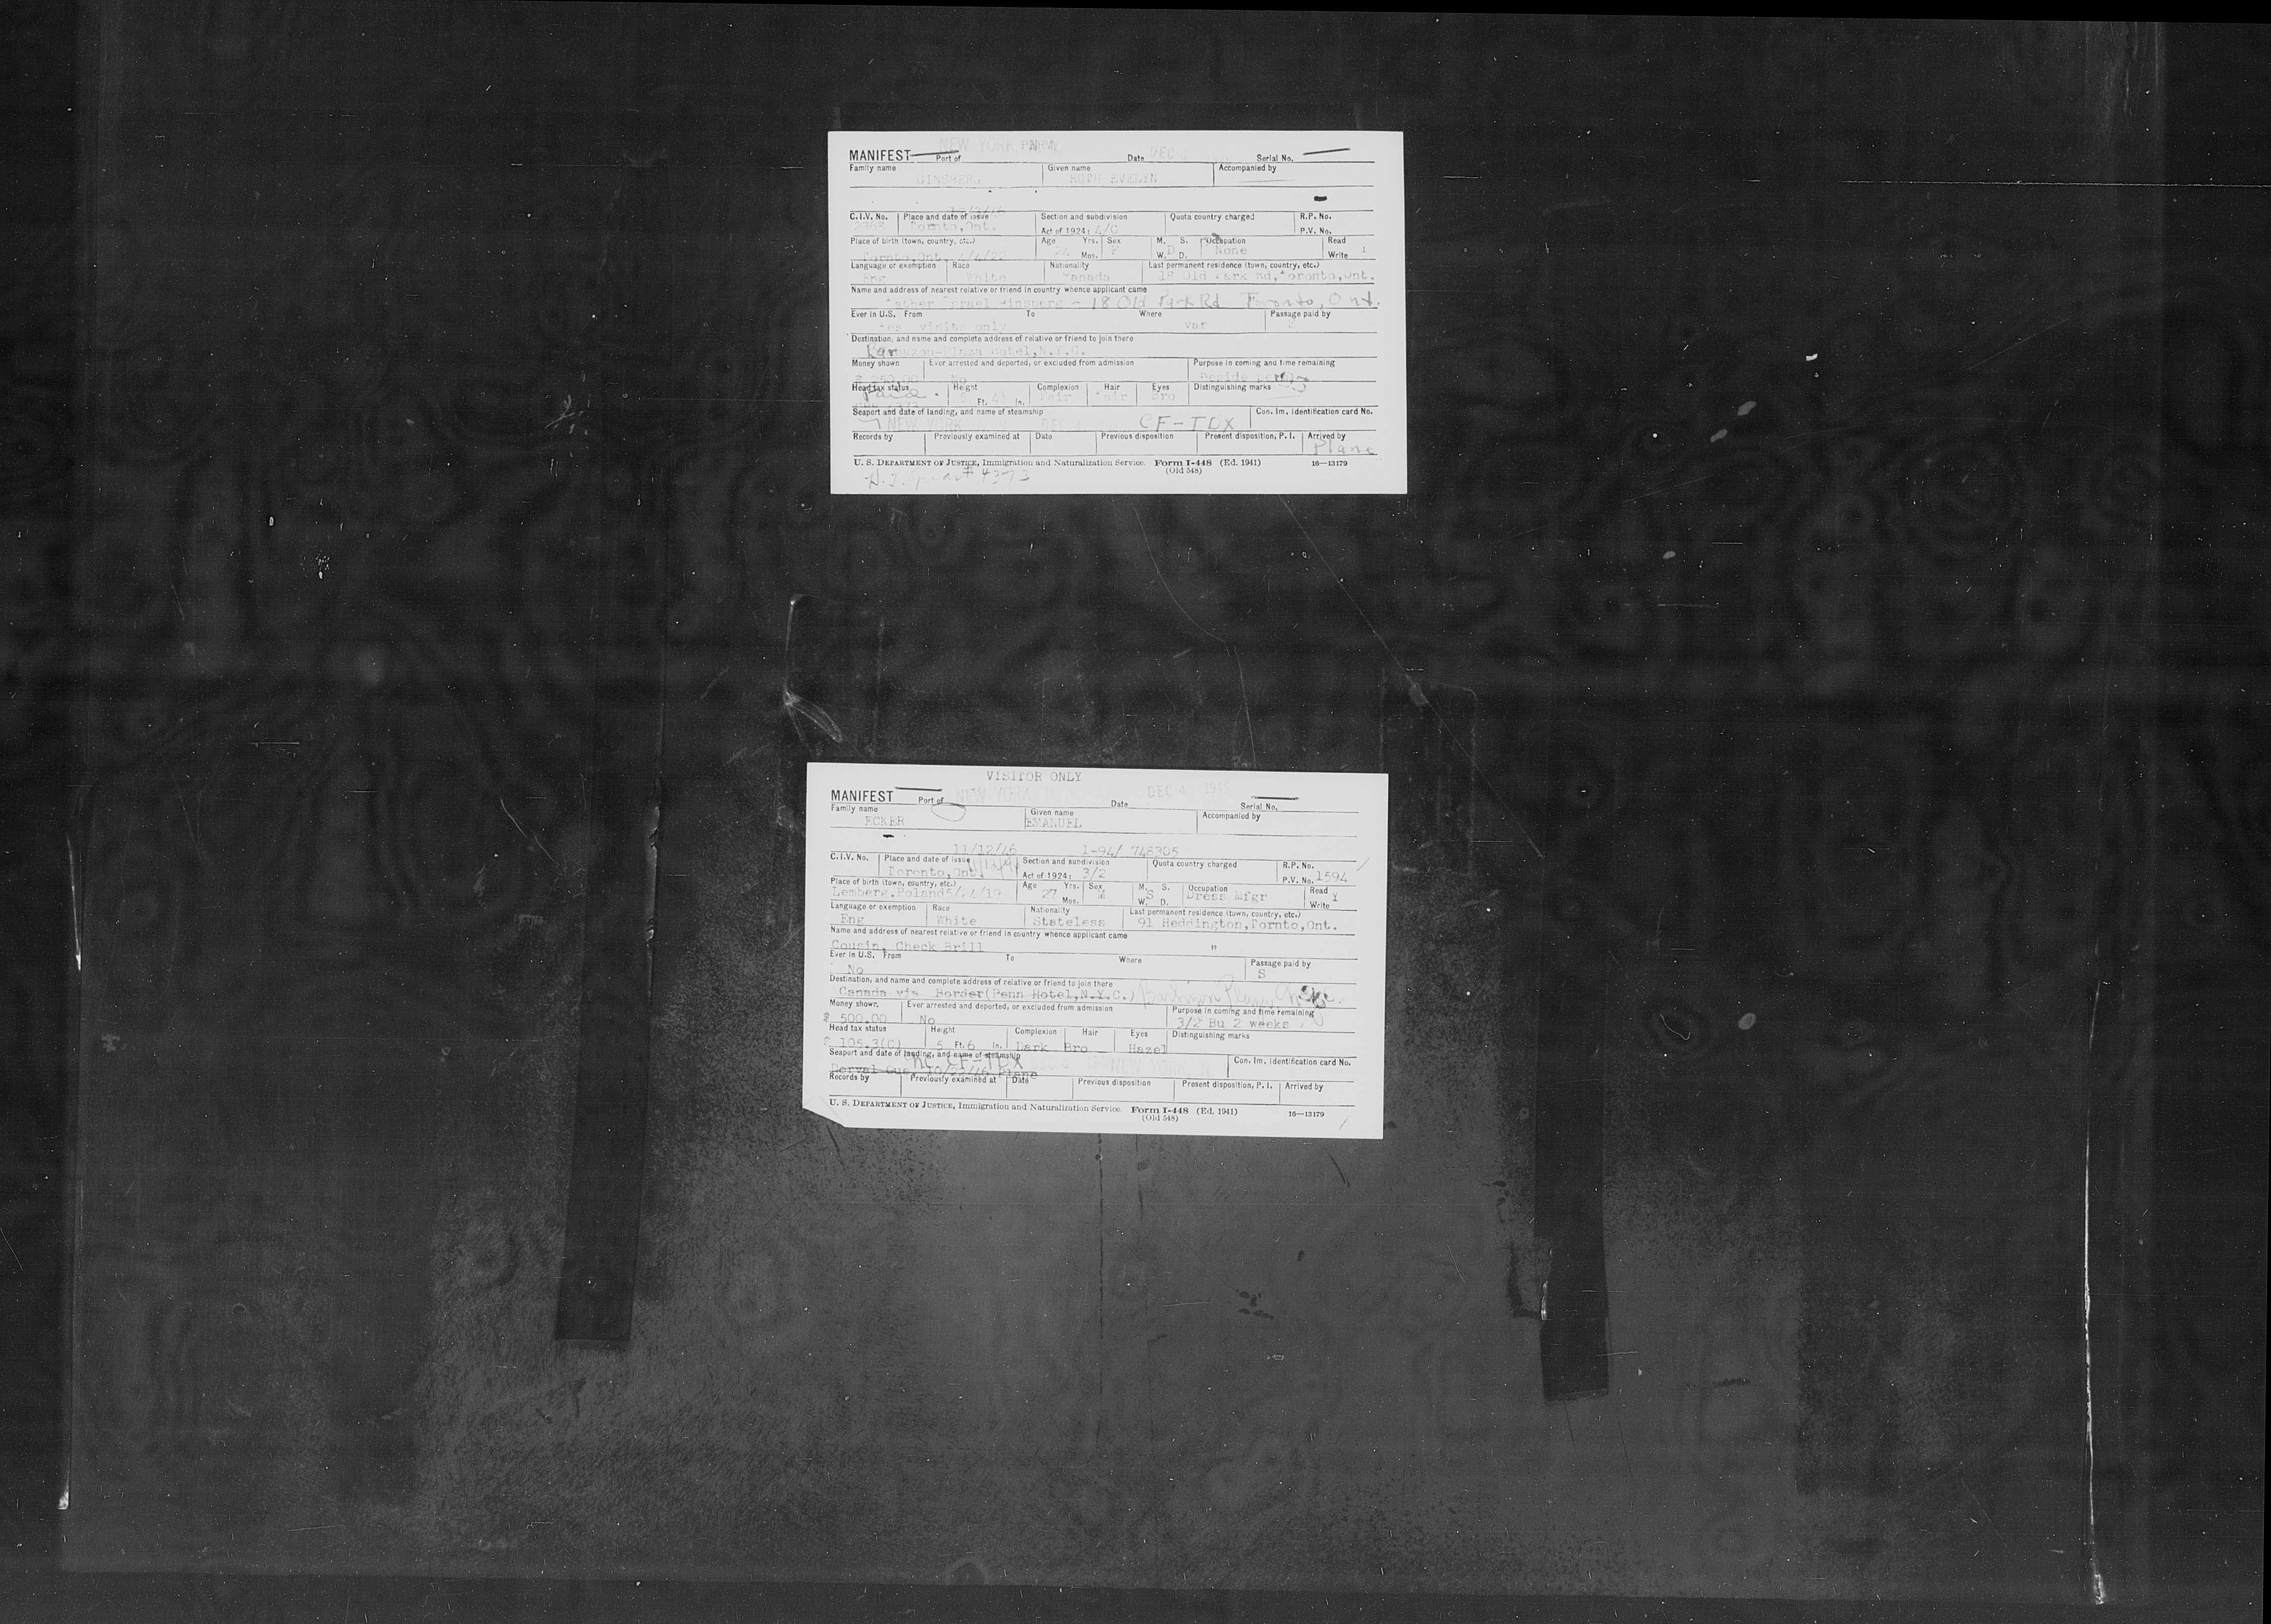 NEW YORK
MANIFEST Port of Date DEC 4 Serial No.
Family name Given name Accompanied by
GINSBERG RUTH EVELYN
C.I.V. No. Place and date of issue Section and subdivision Quota country charged R.P. No.
Tornto,Ont. Act of 1924: 4/C P.V. No.
Place of birth (town, country, etc.) Age Yrs. Sex M. S. Occupation Read
Tornto,Ont. 24 Mos. F W. D D. None Write
Language or exemption Race Nationality Last permanent residence (town, country, etc.)
Eng White Canada 18 Old Park Rd,Toronto,Ont.
Name and address of nearest relative or friend in country whence applicant came
Father Israel Ginsberg - 18 Old Park Rd Toronto, Ont.
Ever in U.S. From To Where Passage paid by
Yes visits only var
Destination, and name and complete address of relative or friend to join there
Hotel,N.Y.C.
Money shown Ever arrested and deported, or excluded from admission Purpose in coming and time remaining
$ 250.00 No Reside
Head tax status Height Complexion Hair Eyes Distinguishing marks
Paid Ft. In. Fair Fair Bro
Seaport and date of landing, and name of steamship Con. Im. Identification card No.
NEW YORK DEC CF-TDX
Records by Previously examined at Date Previous disposition Present disposition, P. I. Arrived by
Plane
U. S. DEPARTMENT OF JUSTICE, Immigration and Naturalization Service. Form I-448 (Ed. 1941) 16—13179
(Old 548)
# 4373
VISITOR ONLY
MANIFEST Port of NEW YORK Date DEC 4 1946 Serial No.
Family name Given name Accompanied by
ECKER EMANUEL
11/12/46 I-94/ 748305
C.I.V. No. Place and date of issue Section and subdivision Quota country charged R.P. No.
Toronto,Ont Act of 1924: 3/2 P.V. No. 1594
Place of birth (town, country, etc.) Age Yrs. Sex M. S. Occupation Read
Lemberg,Poland 5/24/19 27 Mos. M W. S D. Dress Mfgr Write Y
Language or exemption Race Nationality Last permanent residence (town, country, etc.)
Eng White Stateless 91 Heddington,Tornto,Ont.
Name and address of nearest relative or friend in country whence applicant came
Cousin, Check Brill "
Ever in U.S. From To Where Passage paid by
No S
Destination, and name and complete address of relative or friend to join there
Canada via Border(Penn Hotel,N.Y.C.)
Money shown Ever arrested and deported, or excluded from admission Purpose in coming and time remaining
$ 500.00 No 3/2 Bu 2 weeks
Head tax status Height Complexion Hair Eyes Distinguishing marks
$ 105.3(C) 5 Ft. 6 In. Dark Bro Hazel
Seaport and date of landing, and name of steamship Con. Im. Identification card No.
CF-TDX NEW YORK
Records by Previously examined at Date Previous disposition Present disposition, P. I. Arrived by
U. S. DEPARTMENT OF JUSTICE, Immigration and Naturalization Service. Form I-448 (Ed. 1941) 16—13179
(Old 548)